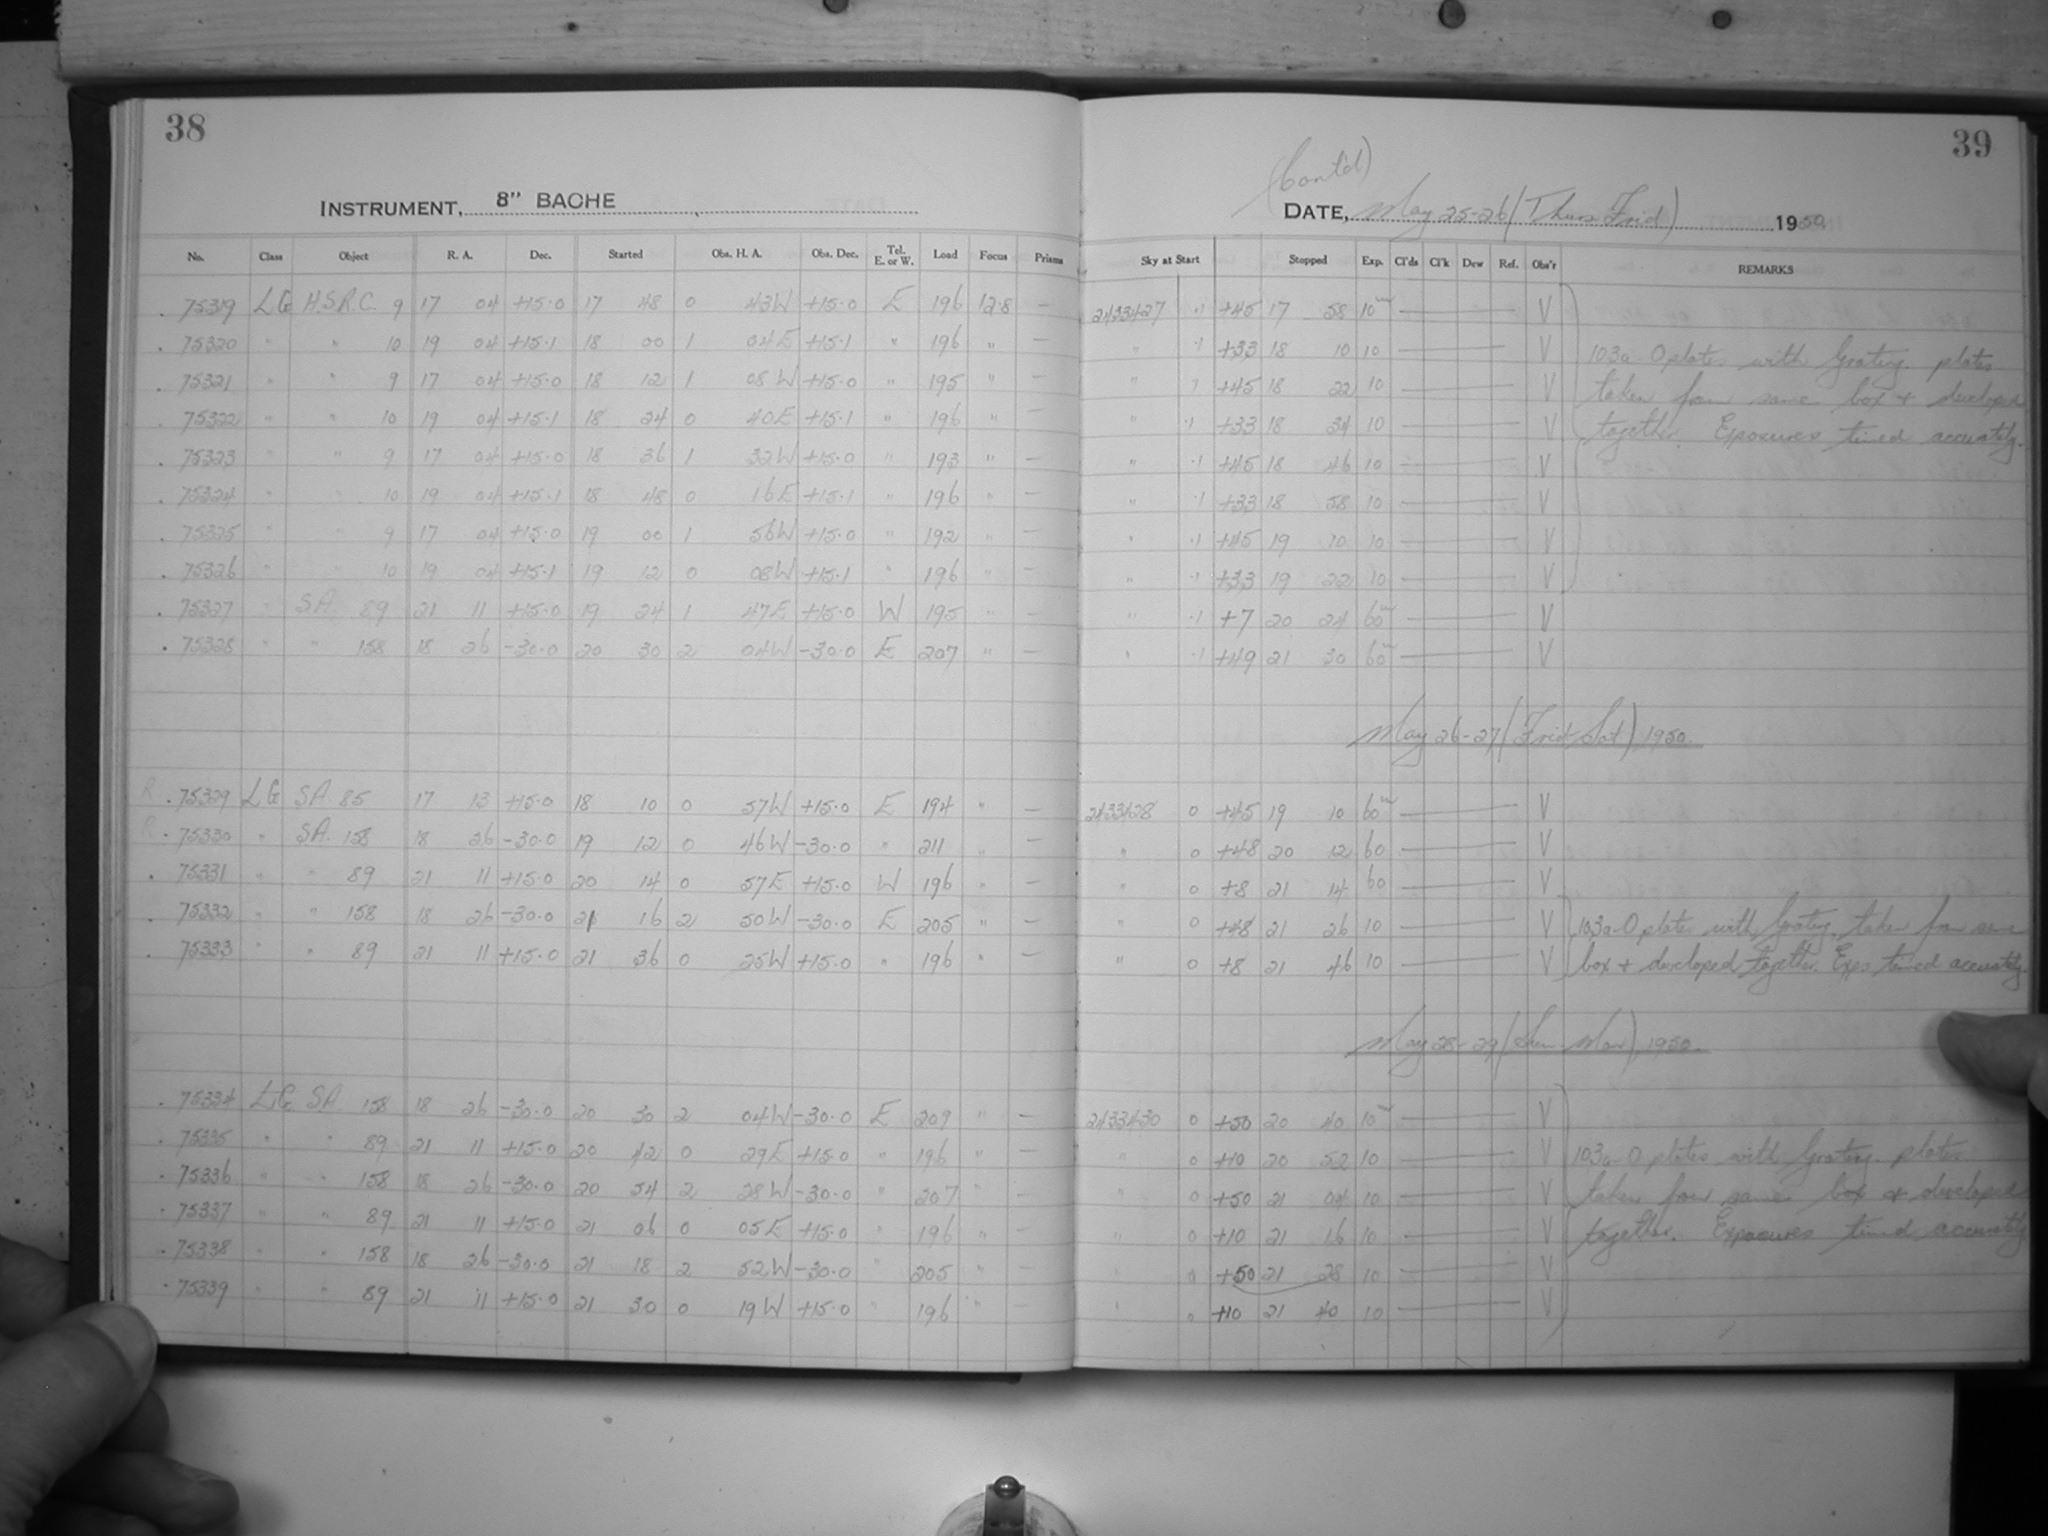 38
INSTRUMENT, 8" BACHE
No. Class Object R. A. Dec. Started Obs. H. A. Obs. Dec. Tel. E. or W. Load Focus Prisms
39
(Cont'd)
DATE, May 25-26 (Thurs Frid) 1950
Sky at Start Stopped Exp. Cl'ds Cl'k Dew Ref. Obs'r REMARKS
75319 LG H.S.R.C. 9 17 04 +15.0 17 48 0 43W +15.0 E 196 12.8 — 2433427 .1 +45 17 58 10m V
75320 " " 10 19 04 +15.1 18 00 1 04E +15.1 " 196 " — " .1 +33 18 10 10 V 103a-O plates with Grating. plates
75321 " " 9 17 04 +15.0 18 12 1 08W +15.0 " 195 " — " .1 +45 18 22 10 V taken from same box + developed
75322 " " 10 19 04 +15.1 18 24 0 40E +15.1 " 196 " — " .1 +33 18 34 10 V together. Exposures timed accurately.
75323 " " 9 17 04 +15.0 18 36 1 32W +15.0 " 193 " — " .1 +45 18 46 10 V
75324 " " 10 19 04 +15.1 18 48 0 16E +15.1 " 196 " — " .1 +33 18 58 10 V
75325 " " 9 17 04 +15.0 19 00 1 56W +15.0 " 192 " — " .1 +45 19 10 10 V
75326 " " 10 19 04 +15.1 19 12 0 08W +15.1 " 196 " — " .1 +33 19 22 10 V
75327 " S.A. 89 21 11 +15.0 19 24 1 47E +15.0 W 195 " — " .1 +7 20 24 60m V
75328 " " 158 18 26 -30.0 20 30 2 04W -30.0 E 207 " — " .1 +49 21 30 60m V
May 26-27 (Frid Sat), 1950.
R 75329 LG SA 85 17 13 +15.0 18 10 0 57W +15.0 E 194 " — 2433428 0 +45 19 10 60m V
R 75330 " SA. 158 18 26 -30.0 19 12 0 46W -30.0 " 211 " — " 0 +48 20 12 60 V
75331 " " 89 21 11 +15.0 20 14 0 57E +15.0 W 196 " — " 0 +8 21 14 60 V
75332 " " 158 18 26 -30.0 21 16 2 50W -30.0 E 205 " — " 0 +48 21 26 10 V 103a-O plates with Grating. taken from same
75333 " " 89 21 11 +15.0 21 36 0 25W +15.0 " 196 " — " 0 +8 21 46 10 V box + developed together. Exps timed accurately.
May 28-29 (Sun-Mon), 1950.
75334 LG SA 158 18 26 -30.0 20 30 2 04W -30.0 E 209 " — 2433430 0 +50 20 40 10m V
75335 " " 89 21 11 +15.0 20 42 0 29E +15.0 " 196 " — " 0 +10 20 52 10 V 103a-O plates with Grating. plates
75336 " " 158 18 26 -30.0 20 54 2 28W -30.0 " 207 " — " 0 +50 21 04 10 V taken from same box & developed
75337 " " 89 21 11 +15.0 21 06 0 05E +15.0 " 196 " — " 0 +10 21 16 10 V together. Exposures timed accurately
75338 " " 158 18 26 -30.0 21 18 2 52W -30.0 " 205 " — " 0 +50 21 28 10 V
75339 " " 89 21 11 +15.0 21 30 0 19W +15.0 " 196 " — " 0 +10 21 40 10 V